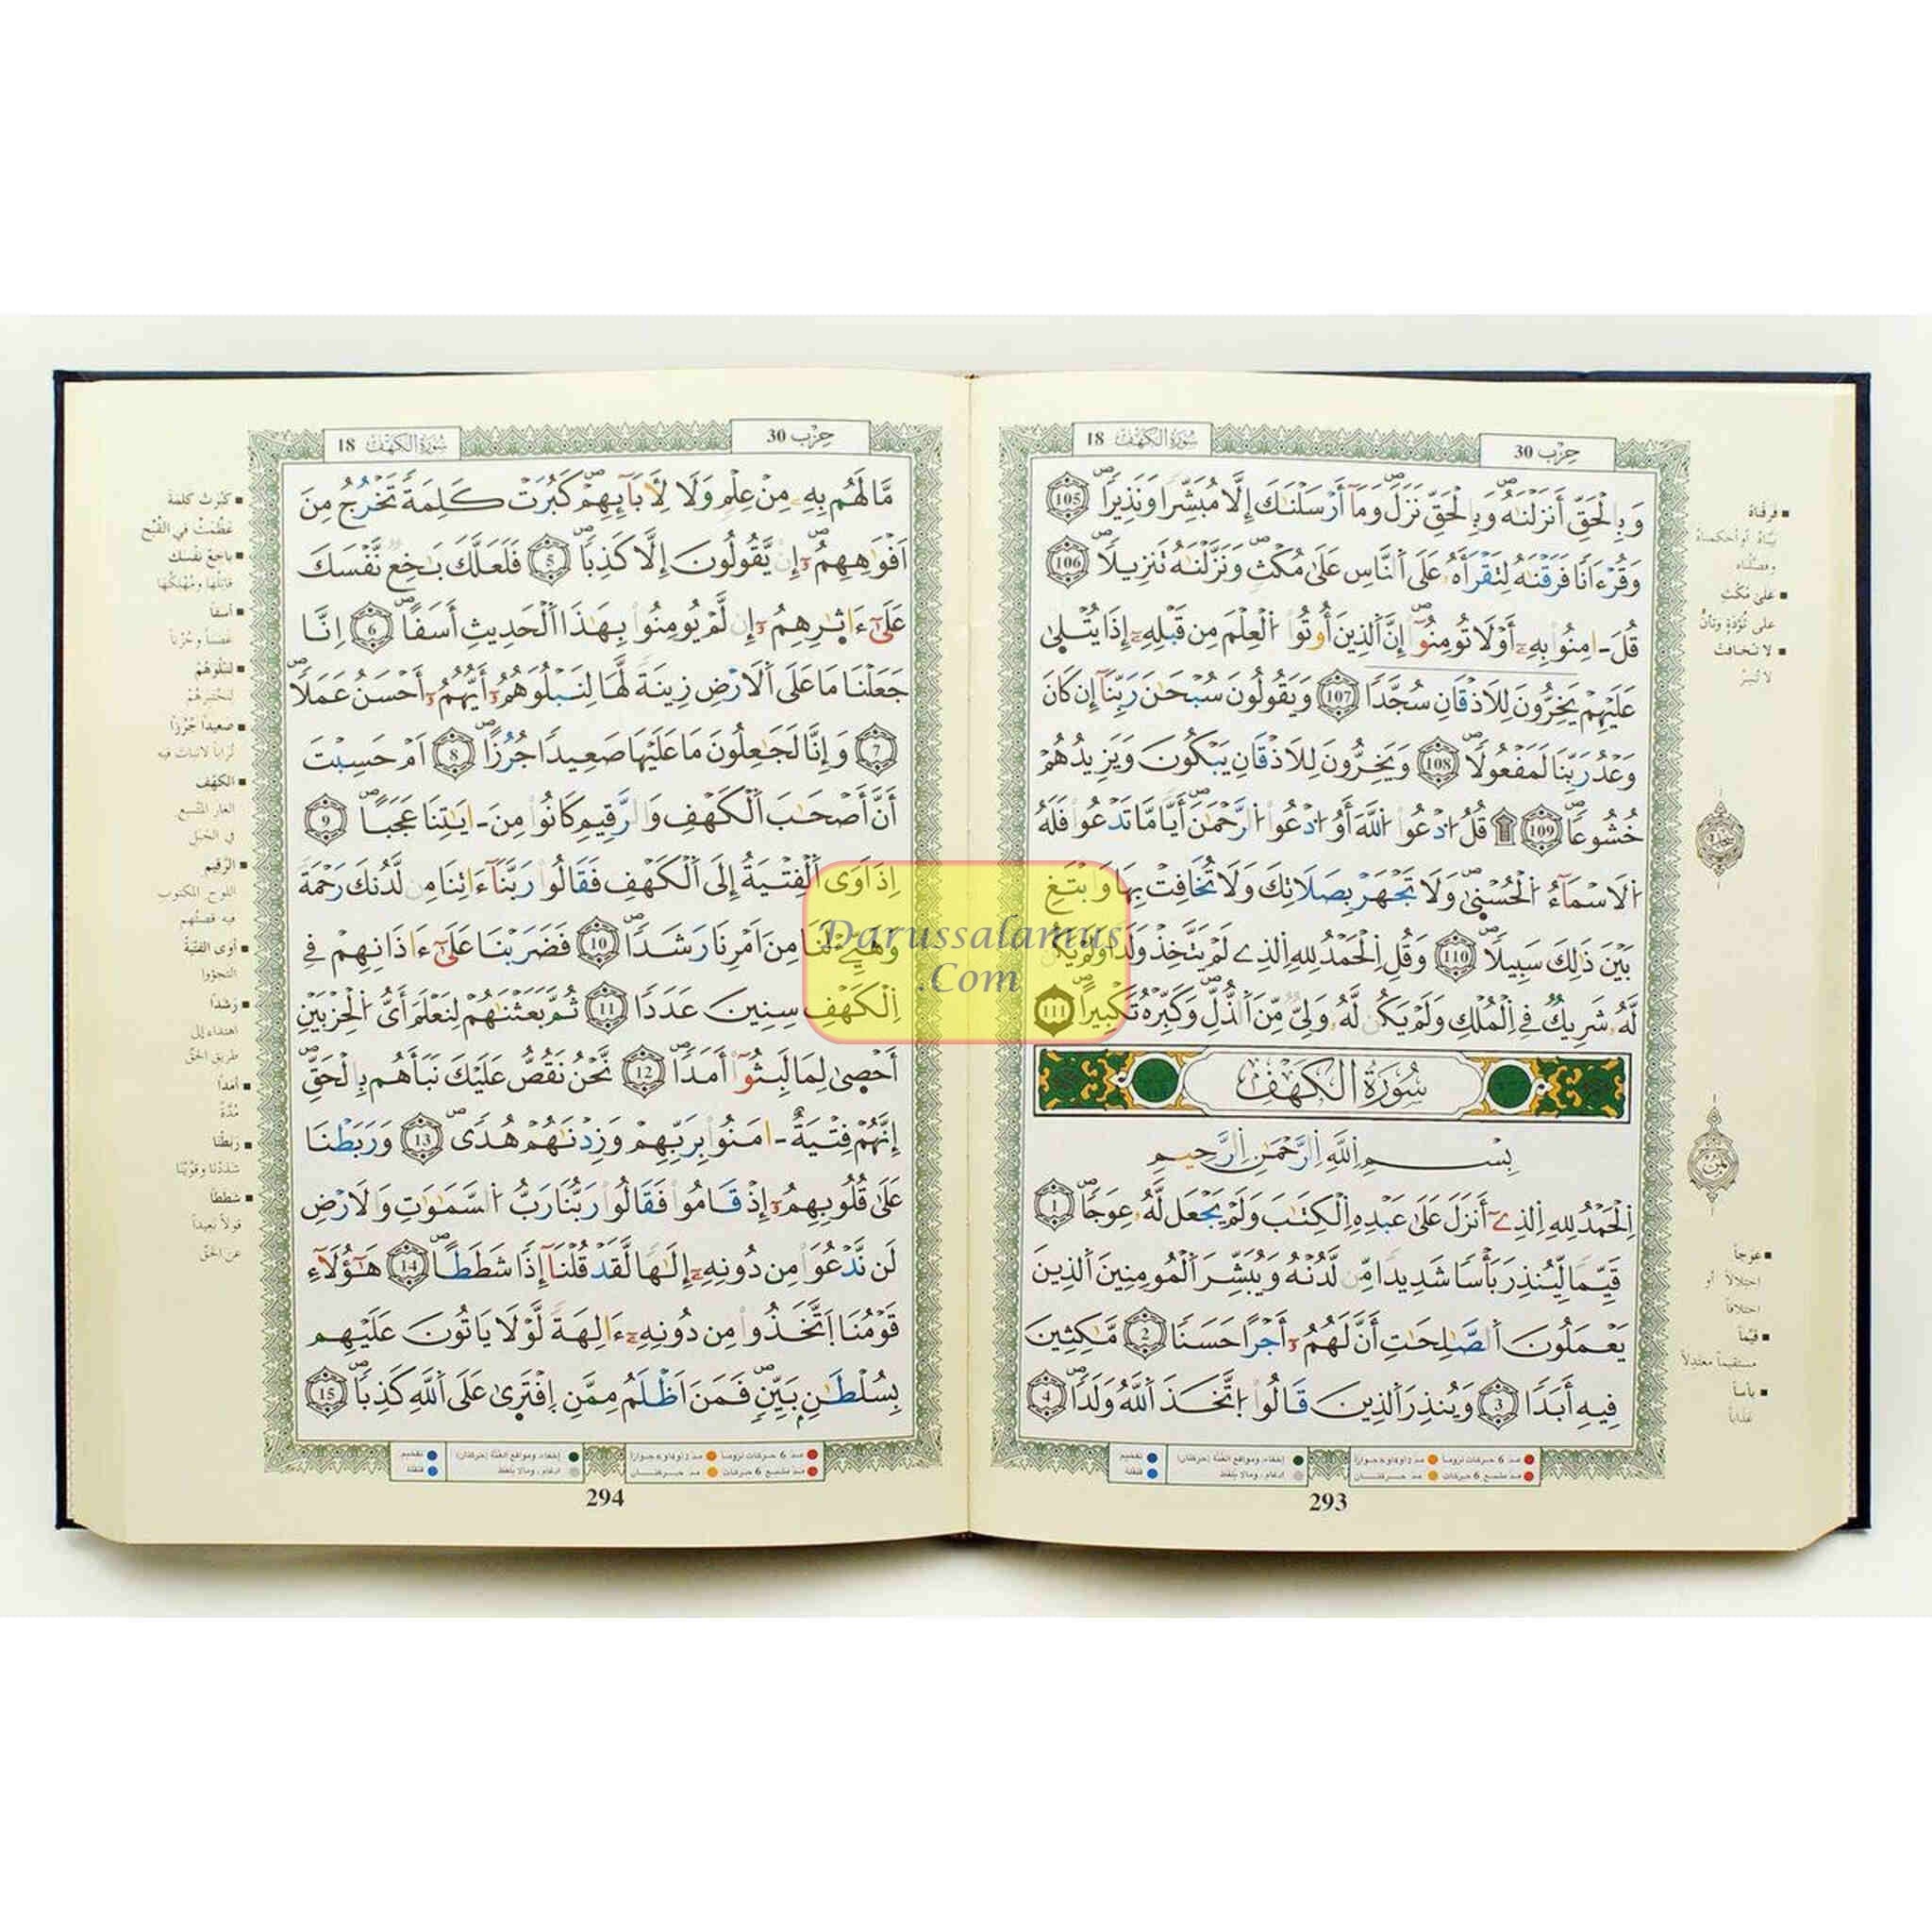 حِزْب 30
سُورَةُ الكَهْفِ 18
وَبِالْحَقِّ أَنزَلْنَٰهُ وَبِالْحَقِّ نَزَلَ وَمَا أَرْسَلْنَٰكَ إِلَّا مُبَشِّرًا وَنَذِيرًا 105
وَقُرْءَانًا فَرَقْنَٰهُ لِتَقْرَأَهُ عَلَى النَّاسِ عَلَىٰ مُكْثٍ وَنَزَّلْنَٰهُ تَنزِيلًا 106
قُلَ اٰمِنُوا بِهِ أَوْ لَا تُومِنُوا إِنَّ الذِينَ أُوتُوا الْعِلْمَ مِن قَبْلِهِ إِذَا يُتْلَىٰ
عَلَيْهِمْ يَخِرُّونَ لِلَاذْقَانِ سُجَّدًا 107 وَيَقُولُونَ سُبْحَٰنَ رَبِّنَا إِن كَانَ
وَعْدُ رَبِّنَا لَمَفْعُولًا 108 وَيَخِرُّونَ لِلَاذْقَانِ يَبْكُونَ وَيَزِيدُهُمْ
خُشُوعًا 109 ۩ قُلُ ادْعُوا اللَّهَ أَوُ ادْعُوا الرَّحْمَٰنَ أَيًّا مَّا تَدْعُوا فَلَهُ
الَاسْمَاءُ الْحُسْنَىٰ وَلَا تَجْهَرْ بِصَلَاتِكَ وَلَا تُخَافِتْ بِهَا وَابْتَغِ
بَيْنَ ذَٰلِكَ سَبِيلًا 110 وَقُلِ الْحَمْدُ لِلهِ الذِي لَمْ يَتَّخِذْ وَلَدًا وَلَمْ يَكُن
لَّهُ شَرِيكٌ فِي الْمُلْكِ وَلَمْ يَكُن لَّهُ وَلِيٌّ مِّنَ الذُّلِّ وَكَبِّرْهُ تَكْبِيرًا 111
سُورَةُ الكَهْفِ
بِسْمِ اللَّهِ الرَّحْمَٰنِ الرَّحِيمِ
الْحَمْدُ لِلهِ الذِي أَنزَلَ عَلَىٰ عَبْدِهِ الْكِتَٰبَ وَلَمْ يَجْعَل لَّهُ عِوَجًا 1
قَيِّمًا لِّيُنذِرَ بَأْسًا شَدِيدًا مِّن لَّدُنْهُ وَيُبَشِّرَ الْمُومِنِينَ الذِينَ
يَعْمَلُونَ الصَّٰلِحَٰتِ أَنَّ لَهُمُ أَجْرًا حَسَنًا 2 مَّٰكِثِينَ
فِيهِ أَبَدًا 3 وَيُنذِرَ الذِينَ قَالُوا اتَّخَذَ اللَّهُ وَلَدًا 4
▪ فرقناه
بيّناه أو أحكمناه
وفصّلناه
▪ على مُكْثٍ
على تُؤَدَةٍ وتأنٍّ
▪ لا تُخافت
لا تُسِرّ
سجدة
ثمن
▪ عِوَجاً
اختلالاً أو
اختلافاً
▪ قيّماً
مستقيماً معتدلاً
▪ بأساً
عَذاباً
مد 6 حركات لزوما
مد 2 أو 4 أو 6 جوازا
إخفاء، ومواقع الغُنَّة (حركتان)
تفخيم
مد مشبع 6 حركات
مد حركتان
إدغام، ومالا يلفظ
قلقلة
293
حِزْب 30
سُورَةُ الكَهْفِ 18
مَّا لَهُم بِهِ مِنْ عِلْمٍ وَلَا لِأٓبَآئِهِمْ كَبُرَتْ كَلِمَةً تَخْرُجُ مِنَ
اَفْوَٰهِهِمُ إِن يَّقُولُونَ إِلَّا كَذِبًا 5 فَلَعَلَّكَ بَٰخِعٌ نَّفْسَكَ
عَلَىٰ ءَاثَٰرِهِمُ إِن لَّمْ يُومِنُوا بِهَٰذَا الْحَدِيثِ أَسَفًا 6 اِنَّا
جَعَلْنَا مَا عَلَى الَارْضِ زِينَةً لَّهَا لِنَبْلُوَهُمُ أَيُّهُمُ أَحْسَنُ عَمَلًا
7 وَإِنَّا لَجَٰعِلُونَ مَا عَلَيْهَا صَعِيدًا جُرُزًا 8 اَمْ حَسِبْتَ
أَنَّ أَصْحَٰبَ الْكَهْفِ وَالرَّقِيمِ كَانُوا مِنَ اٰيَٰتِنَا عَجَبًا 9
اِذَ اَوَى الْفِتْيَةُ إِلَى الْكَهْفِ فَقَالُوا رَبَّنَا ءَاتِنَا مِن لَّدُنكَ رَحْمَةً
وَهَيِّئْ لَنَا مِنَ اَمْرِنَا رَشَدًا 10 فَضَرَبْنَا عَلَىٰ ءَاذَانِهِمْ فِي
الْكَهْفِ سِنِينَ عَدَدًا 11 ثُمَّ بَعَثْنَٰهُمْ لِنَعْلَمَ أَيُّ الْحِزْبَيْنِ
أَحْصَىٰ لِمَا لَبِثُوا أَمَدًا 12 نَّحْنُ نَقُصُّ عَلَيْكَ نَبَأَهُم بِالْحَقِّ
إِنَّهُمْ فِتْيَةٌ اٰمَنُوا بِرَبِّهِمْ وَزِدْنَٰهُمْ هُدًى 13 وَرَبَطْنَا
عَلَىٰ قُلُوبِهِمُ إِذْ قَامُوا فَقَالُوا رَبُّنَا رَبُّ السَّمَٰوَٰتِ وَالَارْضِ
لَن نَّدْعُوَا مِن دُونِهِ إِلَٰهًا لَّقَدْ قُلْنَا إِذًا شَطَطًا 14 هَٰؤُلَاءِ
قَوْمُنَا اتَّخَذُوا مِن دُونِهِ ءَالِهَةً لَّوْلَا يَاتُونَ عَلَيْهِم
بِسُلْطَٰنٍ بَيِّنٍ فَمَنَ اَظْلَمُ مِمَّنِ افْتَرَىٰ عَلَى اللَّهِ كَذِبًا 15
▪ كَبُرَتْ كلمةً
عَظُمَتْ في القُبْح
▪ باخعٌ نفسَك
قاتلُها ومُهلكُها
▪ أسفاً
غضباً وحُزناً
▪ لنبلُوَهُمْ
لنختبرهُم
▪ صعيداً جُرُزاً
تُراباً لا نبات فيه
▪ الكهف
الغار المتّسع
في الجبل
▪ الرّقيم
اللوح المكتوب
فيه قصتهم
▪ أوى الفتيةُ
التجؤوا
▪ رشداً
اهتداء إلى
طريق الحقّ
▪ أمداً
مُدّةً
▪ ربطنا
شددنا وقوّينا
▪ شططاً
قولاً بعيداً
عن الحقّ
مد 6 حركات لزوما
مد 2 أو 4 أو 6 جوازا
إخفاء، ومواقع الغُنَّة (حركتان)
تفخيم
مد مشبع 6 حركات
مد حركتان
إدغام، ومالا يلفظ
قلقلة
294
Darussalamus
.Com